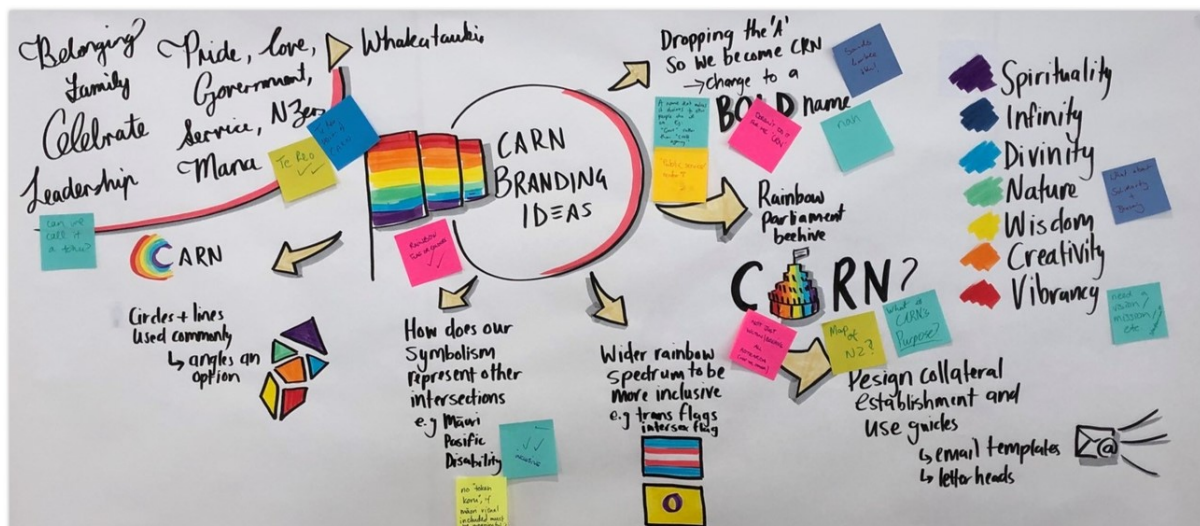 Belonging?
Family
Celebrate
Leadership
Pride, love,
Government,
Service, NZers
Mana
Whakataukī
Te Reo
can we
call it
a tohu?
CARN
Circles + lines
Used commonly
↳ angles an
option
CARN
BRANDING
IDEAS
How does our
Symbolism
represent other
intersections
e.g Māori
Pasific
Disability
no "token
koru", if
māori visual
included must
Wider rainbow
spectrum to be
more inclusive
e.g trans flags
intersex flag
Dropping the 'A'
So we become CRN
→ change to a
BOLD name
nah
Rainbow
Parliament
beehive
CARN?
Map of
NZ?
What is
CARN's
Purpose?
Design collateral
establishment and
use guides
↳ email templates
↳ letterheads
@
Spirituality
Infinity
Divinity
Nature
Wisdom
Creativity
Vibrancy
What about
need a
vision/
mission/
etc